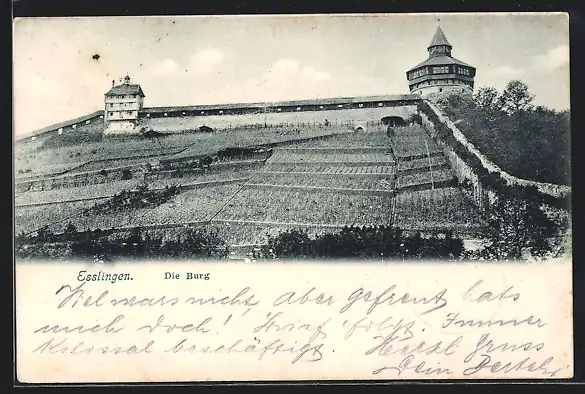 Esslingen. Die Burg
Viel wars nicht, aber gefreut hats
mich doch! Brief folgt. Immer
Kolossal beschäftigt. Herzl. Gruss
Dein